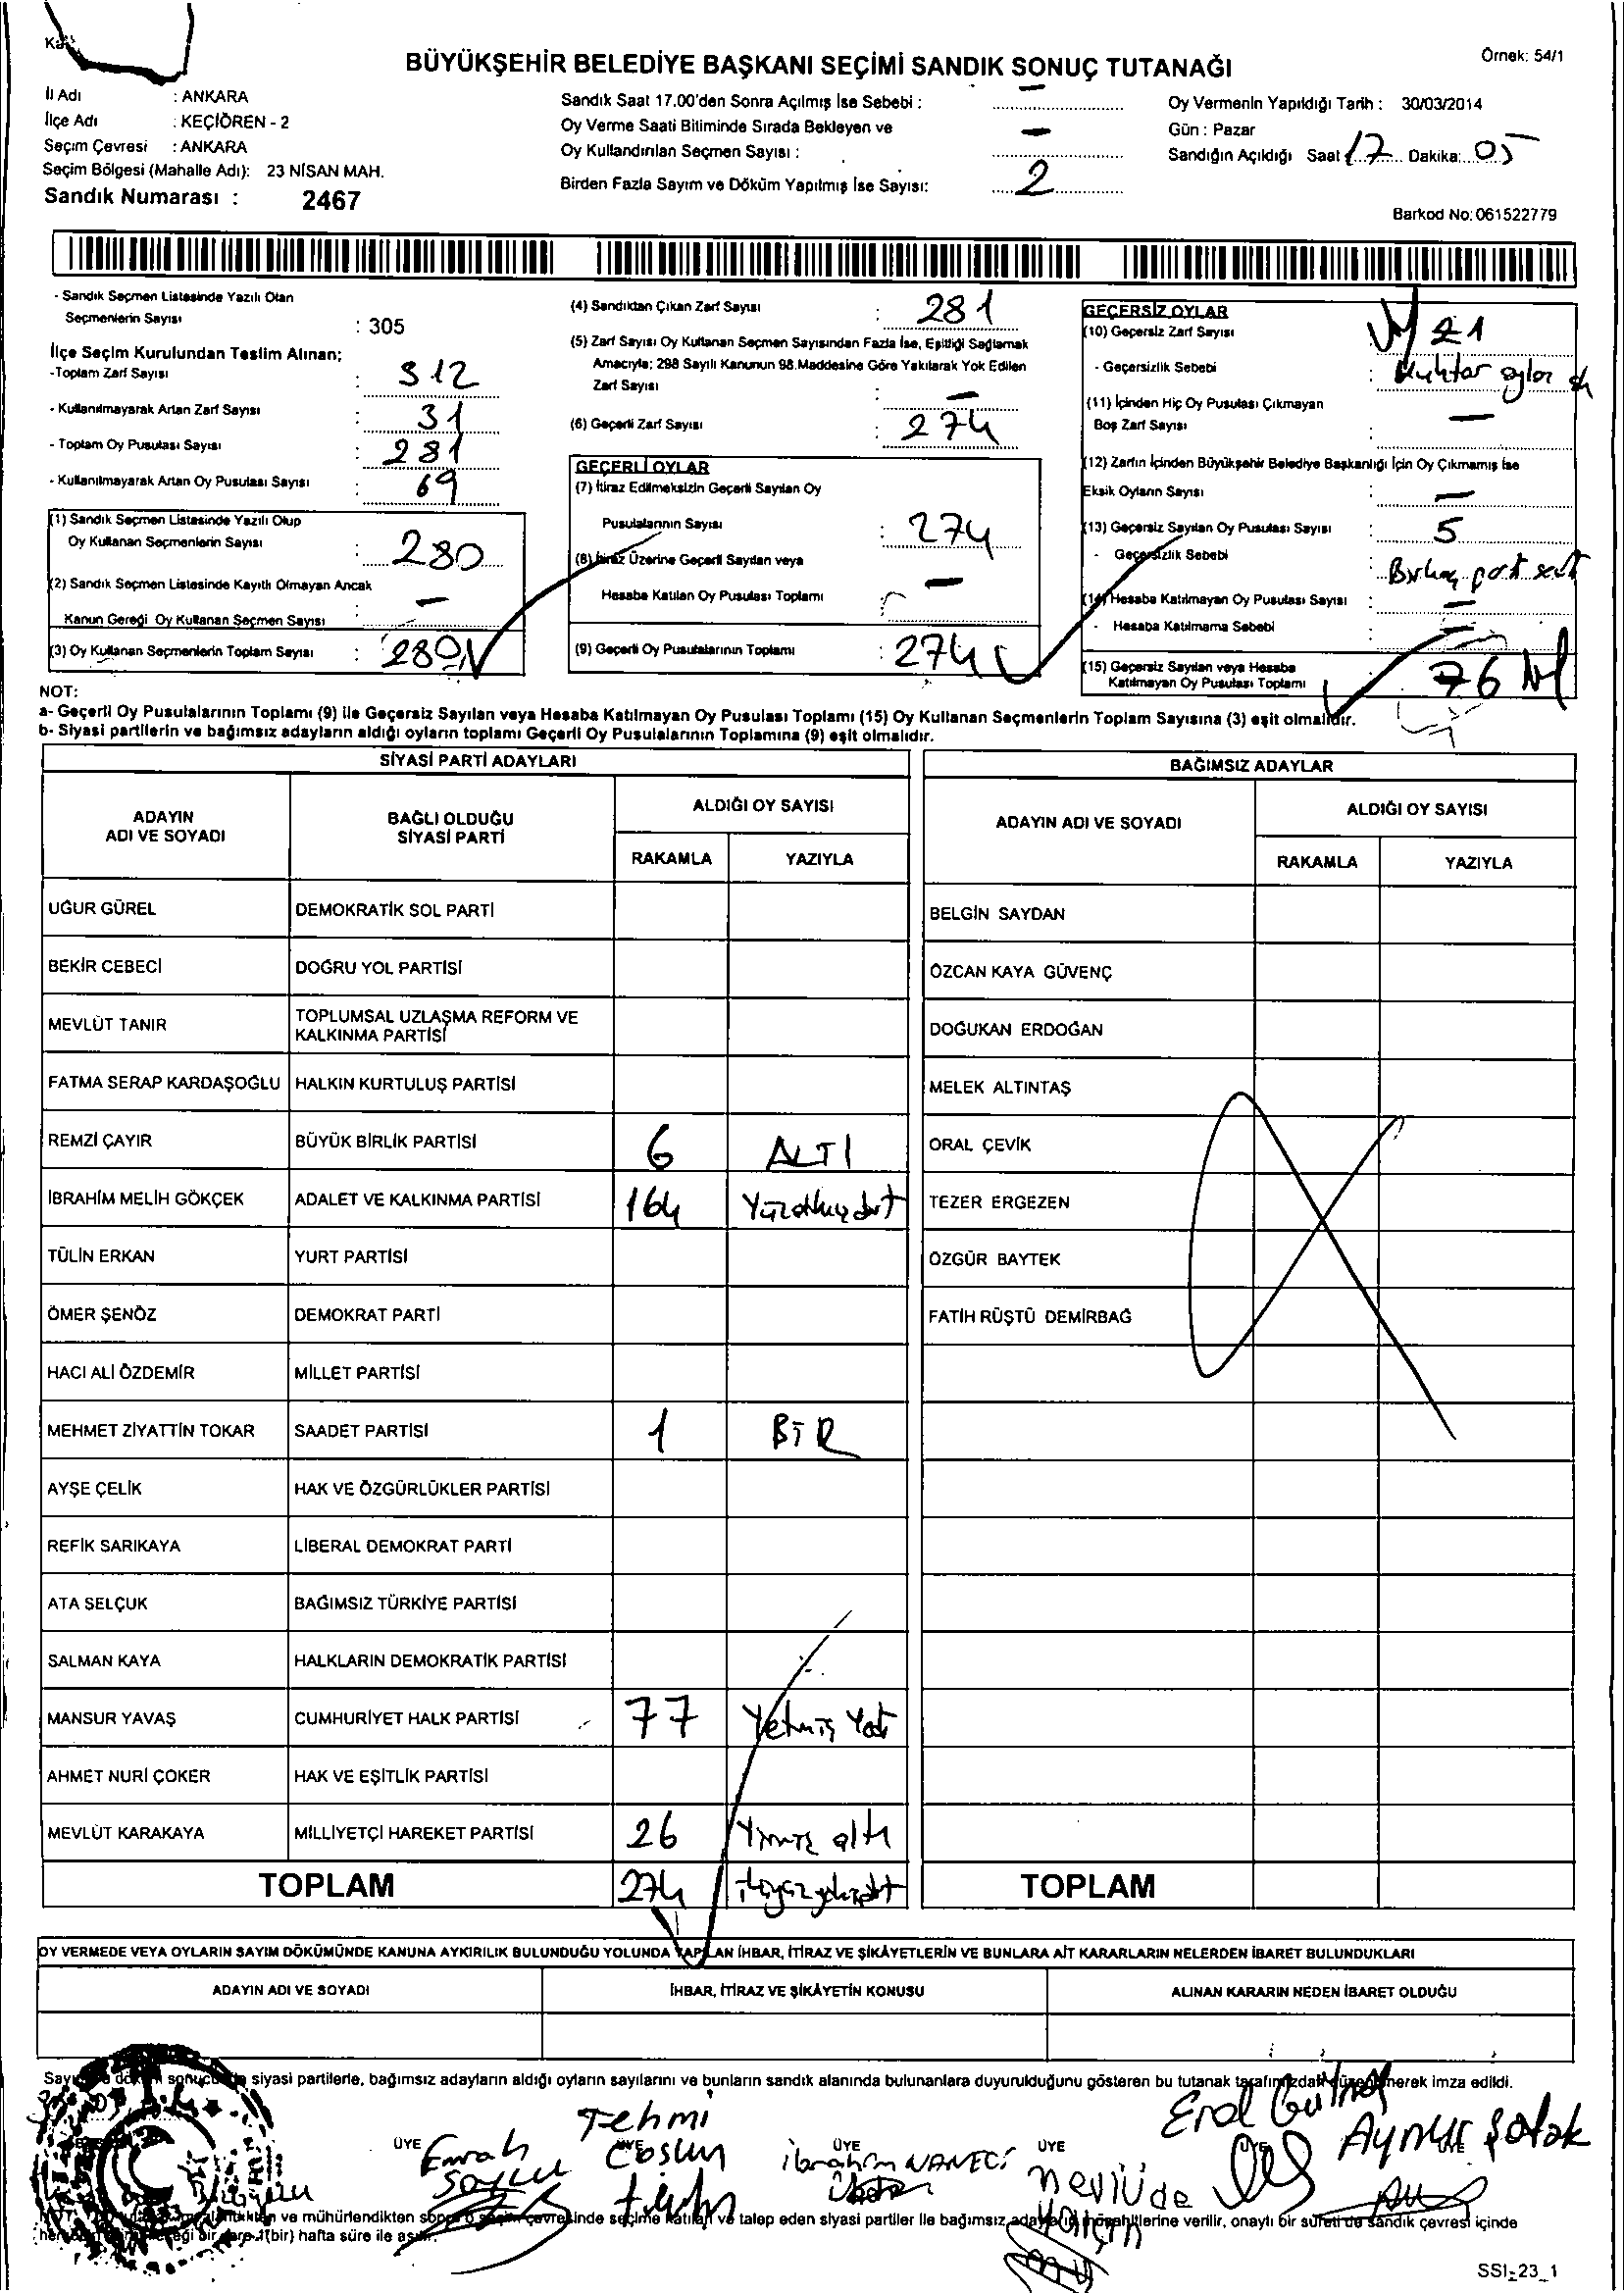 BÜYÜKŞEHİR BELEDİYE BAŞKANI SEÇİMİ SANDIK SONUÇ TUTANAĞI
Örnek: 54/1
İl Adı : ANKARA
İlçe Adı : KEÇİÖREN - 2
Seçim Çevresi : ANKARA
Seçim Bölgesi (Mahalle Adı): 23 NİSAN MAH.
Sandık Numarası : 2467
Sandık Saat 17.00'den Sonra Açılmış İse Sebebi : –
Oy Verme Saati Bitiminde Sırada Bekleyen ve
Oy Kullandırılan Seçmen Sayısı : –
Birden Fazla Sayım ve Döküm Yapılmış İse Sayısı: 2
Oy Vermenin Yapıldığı Tarih : 30/03/2014
Gün : Pazar
Sandığın Açıldığı Saat 17 Dakika: 05
Barkod No: 061522779
- Sandık Seçmen Listesinde Yazılı Olan
Seçmenlerin Sayısı : 305
İlçe Seçim Kurulundan Teslim Alınan;
-Toplam Zarf Sayısı : 312
- Kullanılmayarak Artan Zarf Sayısı : 31
- Toplam Oy Pusulası Sayısı : 281
- Kullanılmayarak Artan Oy Pusulası Sayısı : 69
(1) Sandık Seçmen Listesinde Yazılı Olup
Oy Kullanan Seçmenlerin Sayısı : 280
(2) Sandık Seçmen Listesinde Kayıtlı Olmayan Ancak
Kanun Gereği Oy Kullanan Seçmen Sayısı : –
(3) Oy Kullanan Seçmenlerin Toplam Sayısı : 280
(4) Sandıktan Çıkan Zarf Sayısı : 281
(5) Zarf Sayısı Oy Kullanan Seçmen Sayısından Fazla İse, Eşitliği Sağlamak
Amacıyla; 298 Sayılı Kanunun 98.Maddesine Göre Yakılarak Yok Edilen
Zarf Sayısı : –
(6) Geçerli Zarf Sayısı : 274
GEÇERLİ OYLAR
(7) İtiraz Edilmeksizin Geçerli Sayılan Oy
Pusulalarının Sayısı : 274
(8) İtiraz Üzerine Geçerli Sayılan veya
Hesaba Katılan Oy Pusulası Toplamı : –
(9) Geçerli Oy Pusulalarının Toplamı : 274
GEÇERSİZ OYLAR
(10) Geçersiz Zarf Sayısı 21
- Geçersizlik Sebebi : Muhtar oyları
(11) İçinden Hiç Oy Pusulası Çıkmayan
Boş Zarf Sayısı : –
(12) Zarfın İçinden Büyükşehir Belediye Başkanlığı İçin Oy Çıkmamış İse
Eksik Oyların Sayısı : –
(13) Geçersiz Sayılan Oy Pusulası Sayısı : 5
- Geçersizlik Sebebi : Birkaç parti
(14) Hesaba Katılmayan Oy Pusulası Sayısı : –
- Hesaba Katılmama Sebebi : –
(15) Geçersiz Sayılan veya Hesaba
Katılmayan Oy Pusulası Toplamı : 6
NOT:
a- Geçerli Oy Pusulalarının Toplamı (9) ile Geçersiz Sayılan veya Hesaba Katılmayan Oy Pusulası Toplamı (15) Oy Kullanan Seçmenlerin Toplam Sayısına (3) eşit olmalıdır.
b- Siyasi partilerin ve bağımsız adayların aldığı oyların toplamı Geçerli Oy Pusulalarının Toplamına (9) eşit olmalıdır.
SİYASİ PARTİ ADAYLARI
ADAYIN ADI VE SOYADI BAĞLI OLDUĞU SİYASİ PARTİ ALDIĞI OY SAYISI
RAKAMLA YAZIYLA
UĞUR GÜREL DEMOKRATİK SOL PARTİ
BEKİR CEBECİ DOĞRU YOL PARTİSİ
MEVLÜT TANIR TOPLUMSAL UZLAŞMA REFORM VE KALKINMA PARTİSİ
FATMA SERAP KARDAŞOĞLU HALKIN KURTULUŞ PARTİSİ
REMZİ ÇAYIR BÜYÜK BİRLİK PARTİSİ 6 ALTI
İBRAHİM MELİH GÖKÇEK ADALET VE KALKINMA PARTİSİ 164 Yüzaltmışdört
TÜLİN ERKAN YURT PARTİSİ
ÖMER ŞENÖZ DEMOKRAT PARTİ
HACI ALİ ÖZDEMİR MİLLET PARTİSİ
MEHMET ZİYATTİN TOKAR SAADET PARTİSİ 1 BİR
AYŞE ÇELİK HAK VE ÖZGÜRLÜKLER PARTİSİ
REFİK SARIKAYA LİBERAL DEMOKRAT PARTİ
ATA SELÇUK BAĞIMSIZ TÜRKİYE PARTİSİ
SALMAN KAYA HALKLARIN DEMOKRATİK PARTİSİ
MANSUR YAVAŞ CUMHURİYET HALK PARTİSİ 77 Yetmiş Yedi
AHMET NURİ ÇOKER HAK VE EŞİTLİK PARTİSİ
MEVLÜT KARAKAYA MİLLİYETÇİ HAREKET PARTİSİ 26 Yirmi altı
TOPLAM 274 ikiyüzyetmişdört
BAĞIMSIZ ADAYLAR
ADAYIN ADI VE SOYADI ALDIĞI OY SAYISI
RAKAMLA YAZIYLA
BELGİN SAYDAN
ÖZCAN KAYA GÜVENÇ
DOĞUKAN ERDOĞAN
MELEK ALTINTAŞ
ORAL ÇEVİK
TEZER ERGEZEN
ÖZGÜR BAYTEK
FATİH RÜŞTÜ DEMİRBAĞ
TOPLAM
OY VERMEDE VEYA OYLARIN SAYIM DÖKÜMÜNDE KANUNA AYKIRILIK BULUNDUĞU YOLUNDA YAPILAN İHBAR, İTİRAZ VE ŞİKÂYETLERİN VE BUNLARA AİT KARARLARIN NELERDEN İBARET BULUNDUKLARI
ADAYIN ADI VE SOYADI İHBAR, İTİRAZ VE ŞİKÂYETİN KONUSU ALINAN KARARIN NEDEN İBARET OLDUĞU
siyasi partilerle, bağımsız adayların aldığı oyların sayılarını ve bunların sandık alanında bulunanlara duyurulduğunu gösteren bu tutanak tarafımızdan düzenlenerek imza edildi.
ÜYE ÜYE ÜYE ÜYE ÜYE ÜYE
Emrah Soylu
Fehmi Coşun
İbrahim NANECİ
Nevlüde Yalçın
Erol Gürel
Aynur Şafak
ve mühürlendikten sonra o seçim çevresinde seçime katılan ve talep eden siyasi partiler ile bağımsız adayların müşahitlerine verilir, onaylı bir sureti de sandık çevresi içinde
bir yere 1(bir) hafta süre ile asılır.
SSI-23_1